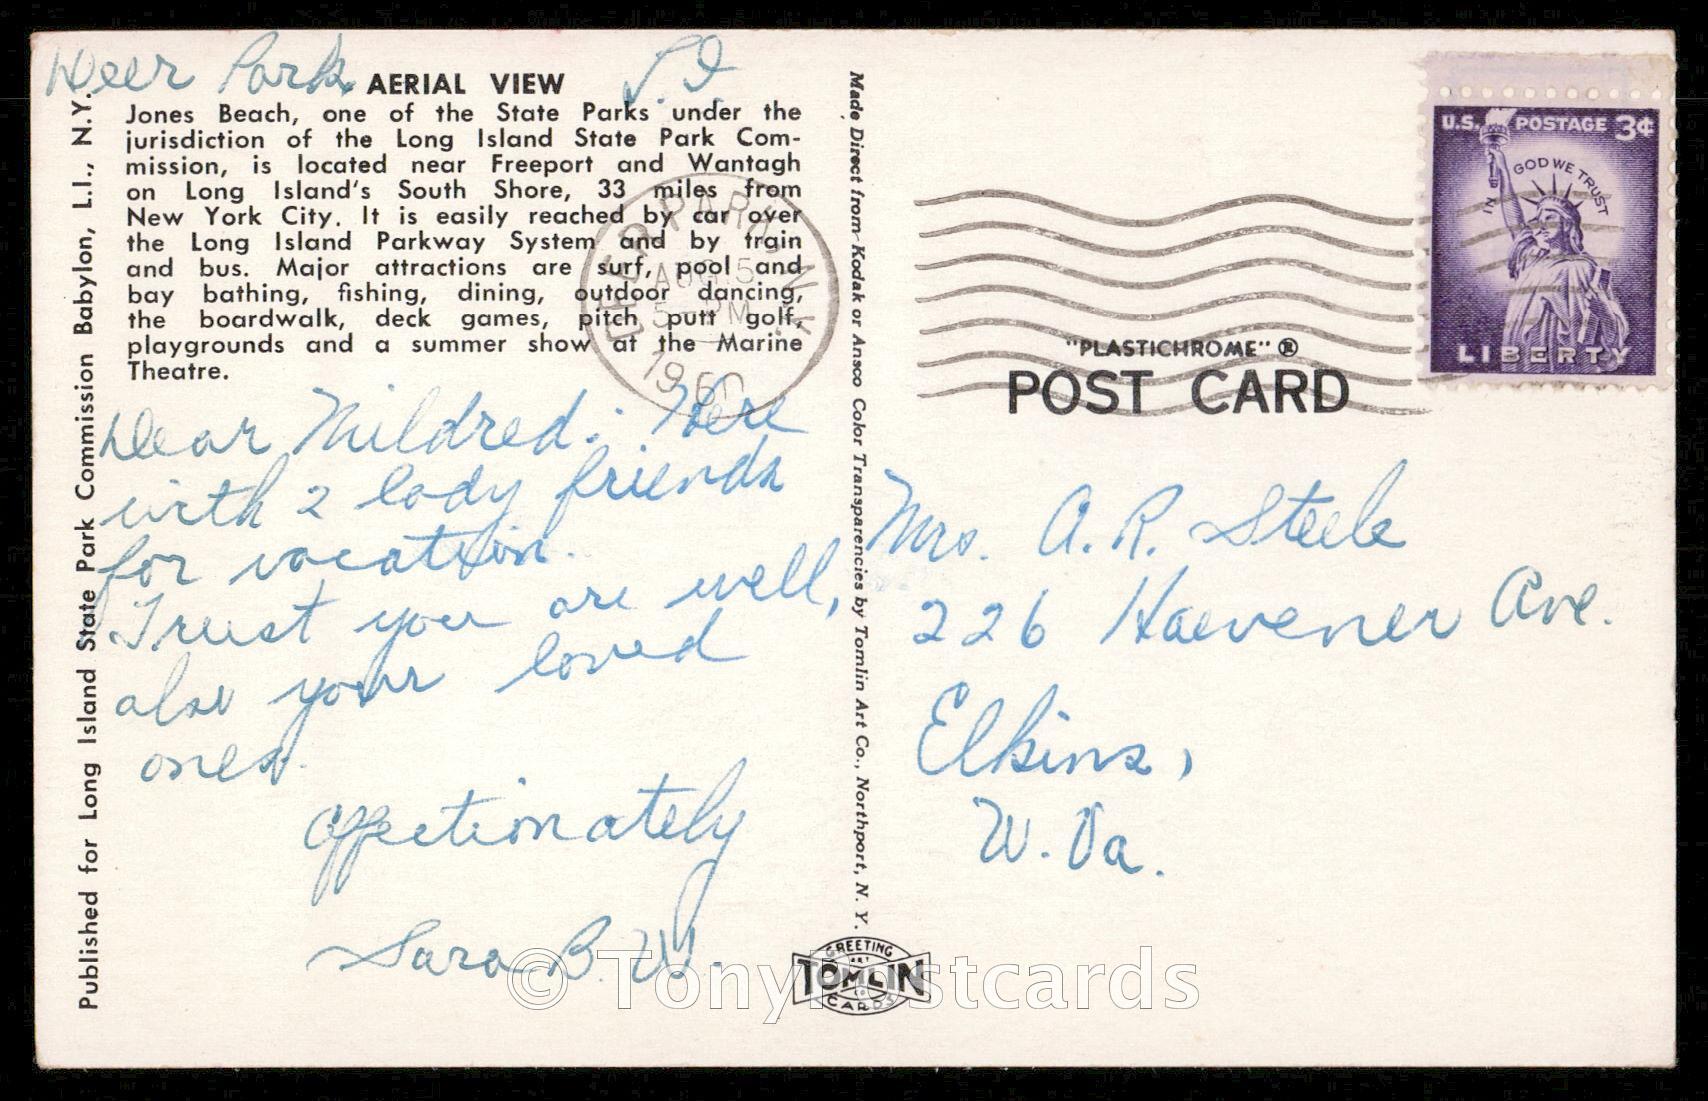 Deer Park L.I.
AERIAL VIEW
Jones Beach, one of the State Parks under the
jurisdiction of the Long Island State Park Com-
mission, is located near Freeport and Wantagh
on Long Island's South Shore, 33 miles from
New York City. It is easily reached by car over
the Long Island Parkway System and by train
and bus. Major attractions are surf, pool and
bay bathing, fishing, dining, outdoor dancing,
the boardwalk, deck games, pitch putt golf,
playgrounds and a summer show at the Marine
Theatre.
Published for Long Island State Park Commission Babylon, L.I., N.Y.
Dear Mildred: Here
with 2 lady friends
for vacation.
Trust you are well,
also your loved
ones.
affectionately
Sara B. W.
Made Direct from Kodak or Ansco Color Transparencies by Tomlin Art Co., Northport, N. Y.
DEER PARK, N.Y.
AUG 5
5 - PM
1960
U.S. POSTAGE 3¢
IN GOD WE TRUST
LIBERTY
"PLASTICHROME" ®
POST CARD
Mrs. A. R. Steele
226 Haevener Ave.
Elkins,
W. Va.
GREETING
ART
TOMLIN
CO
CARDS
© TonyPostcards